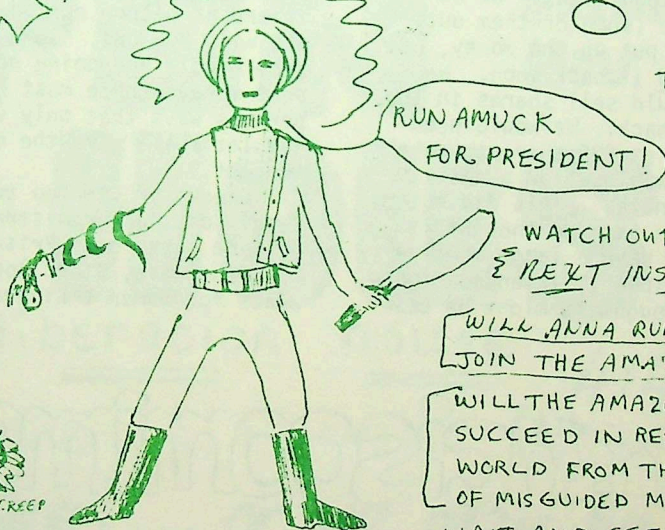 RUN AMUCK
FOR PRESIDENT!
WATCH OUT
NEXT INS
WILL ANNA RU
JOIN THE AMA
WILL THE AMAZ
SUCCEED IN RE
WORLD FROM TH
OF MISGUIDED M
CREEP